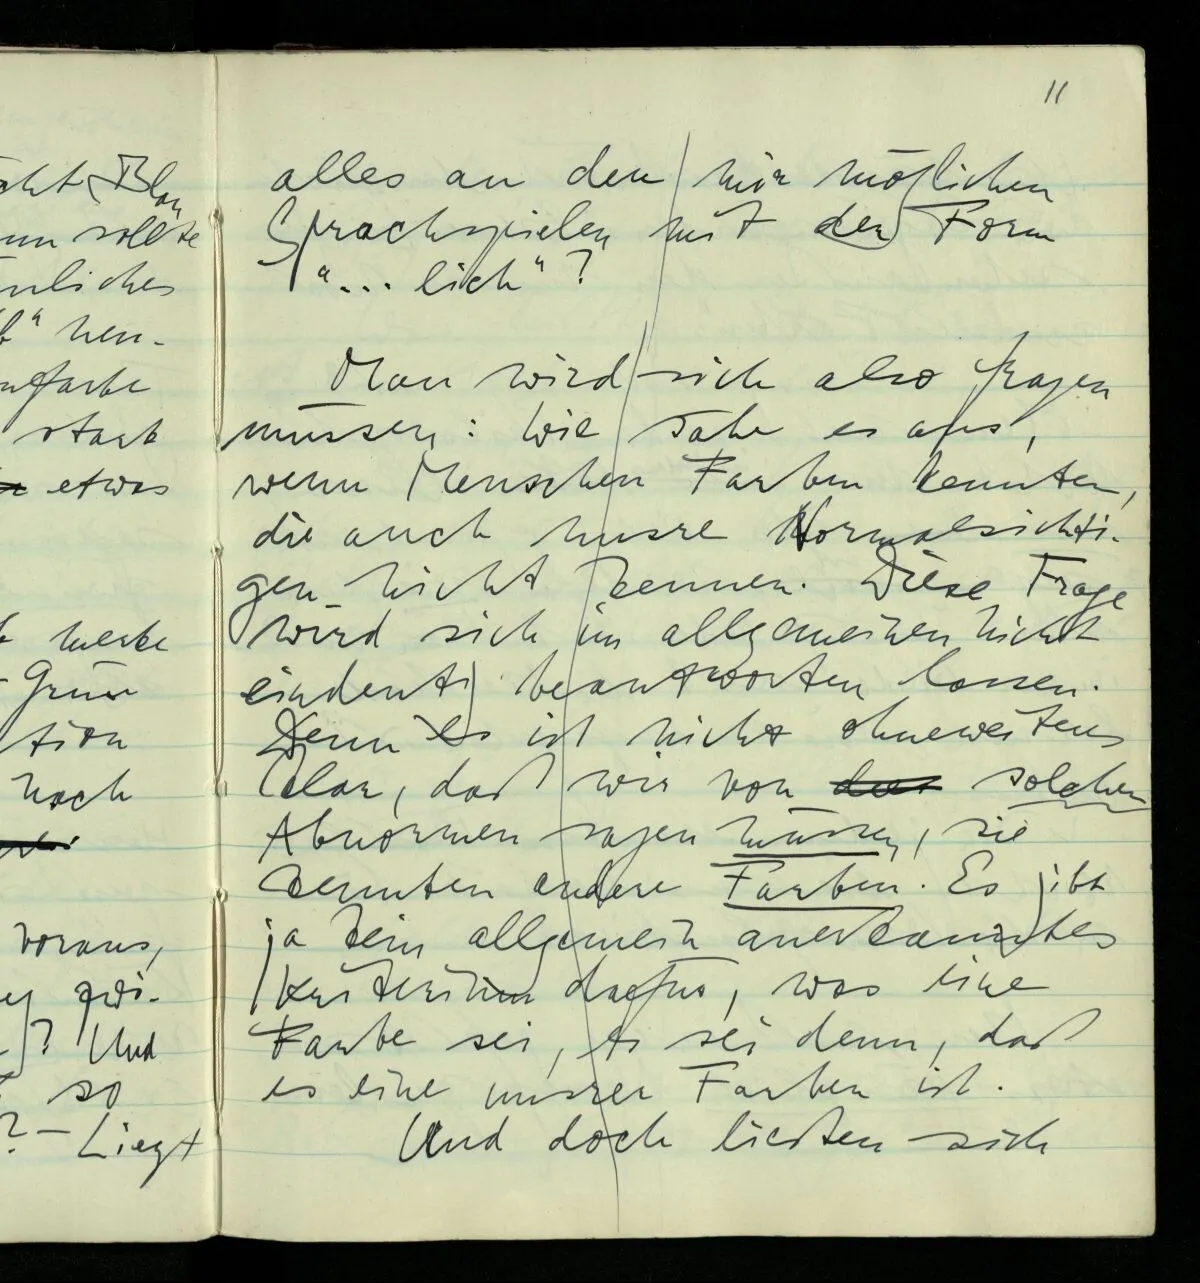 Blau
sollte
nliches
farbe
stark
etwas
merke
Grün
tion
noch
voraus,
? Und
so
? – Liegt
11
alles an den mir möglichen
Sprachspielen mit der Form
“... lich”?
Man wird sich also fragen
müssen: Wie sähe es aus,
wenn Menschen Farben kennten,
die auch unsre Normalsichti-
gen nicht kennen. Diese Frage
wird sich im allgemeinen nicht
eindeutig beantworten lassen.
Denn es ist nicht ohneweiteres
klar, daß wir von solchen
Abnormen sagen müssen, sie
kennten andere Farben. Es gibt
ja kein allgemein anerkanntes
Kriterium dafür, was eine
Farbe sei, es sei denn, daß
es eine unsrer Farben ist.
Und doch ließen sich